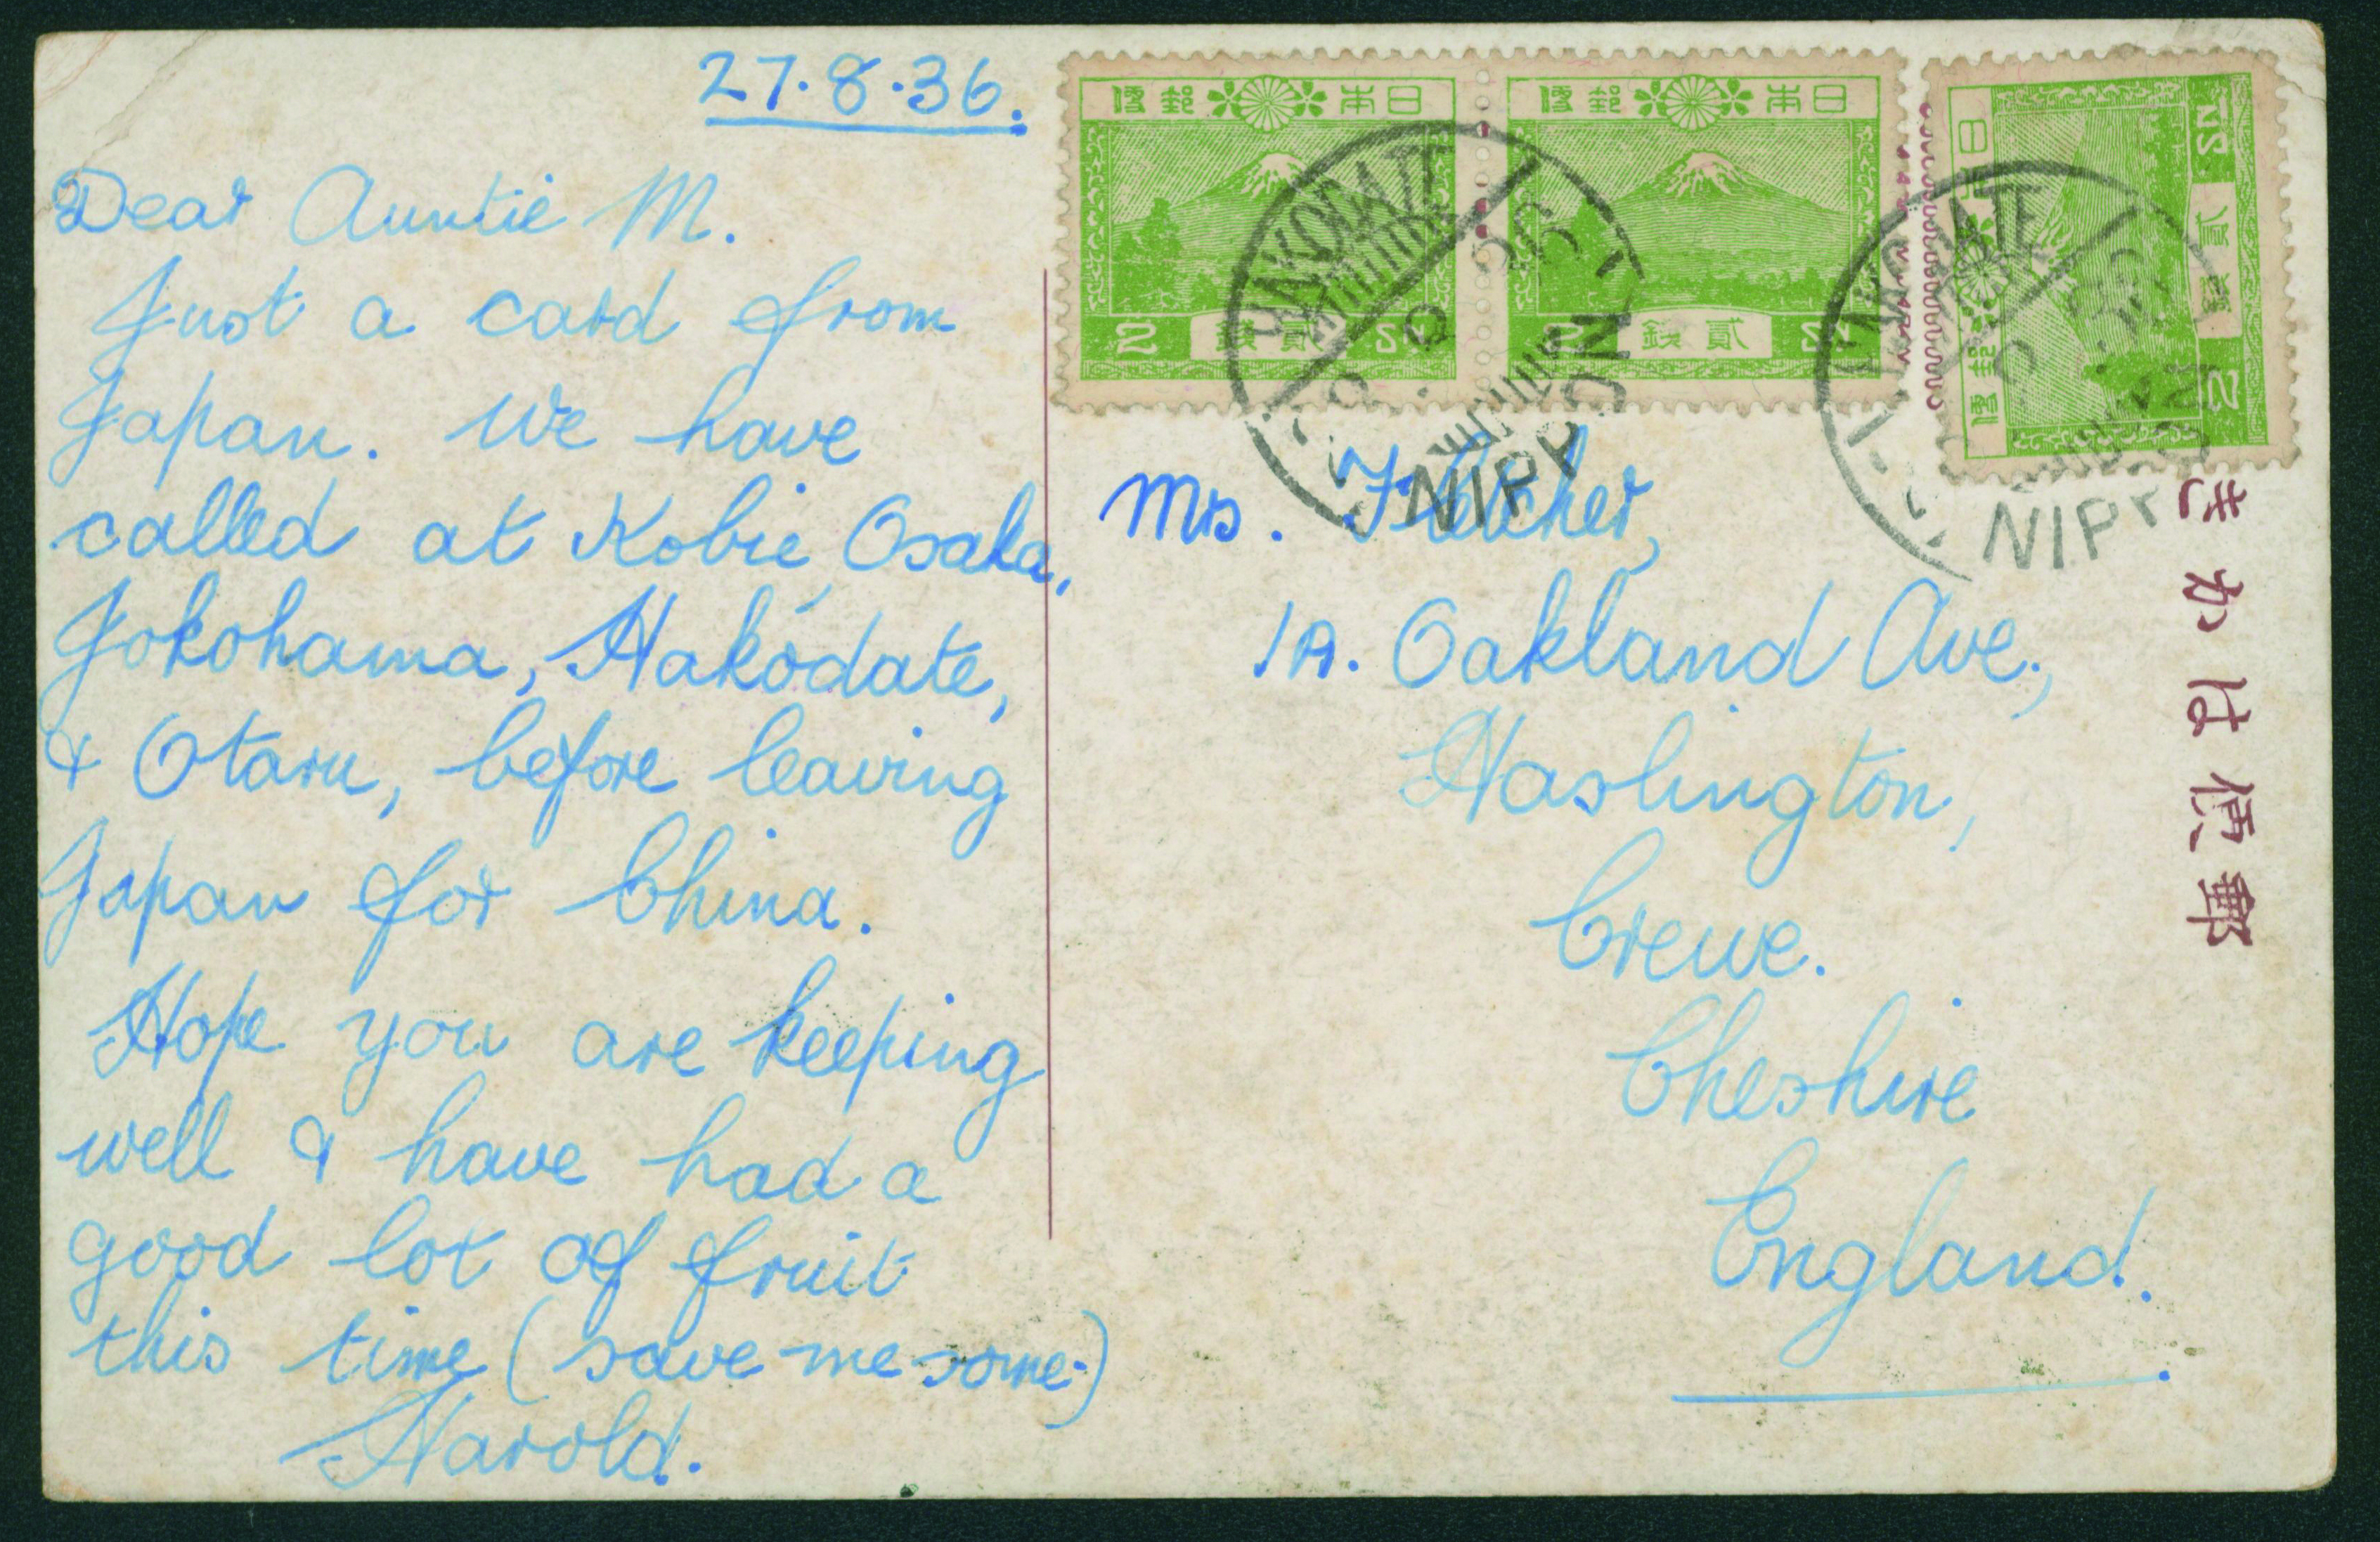 27.8.36.
Dear Auntie M.
Just a card from
Japan. We have
called at Kobie, Osaka,
Yokohama, Hakodate,
& Otaru, before leaving
Japan for China.
Hope you are keeping
well & have had a
good lot of fruit
this time (save me some.)
Harold.
日本郵便
2 貳錢 SN.
日本郵便
2 貳錢 SN.
日本郵便
2 貳錢 SN.
HAKODATE
NIPPON
NIPPON
Mrs. Fletcher,
1A. Oakland Ave.,
Haslington,
Crewe.
Cheshire
England.
郵便はかき